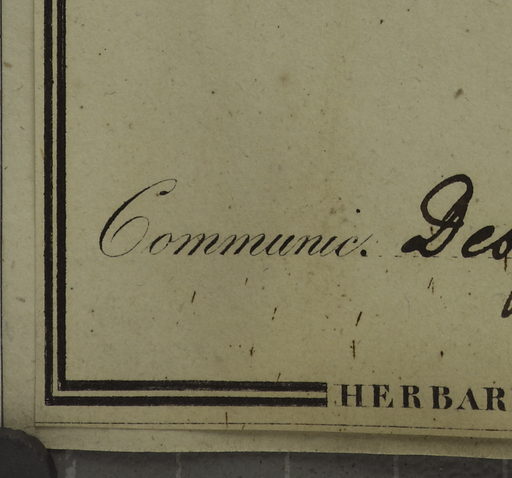 Communic. Des
HERBAR